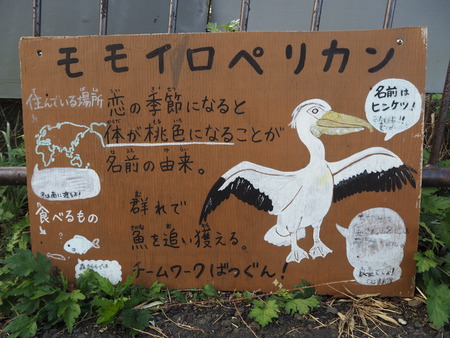 モモイロペリカン
住んでいる場所
恋の季節になると
体が桃色になることが
名前の由来。
食べるもの
群れで
魚を追い獲える。
チームワークばつぐん!
名前は
ヒンケツ!